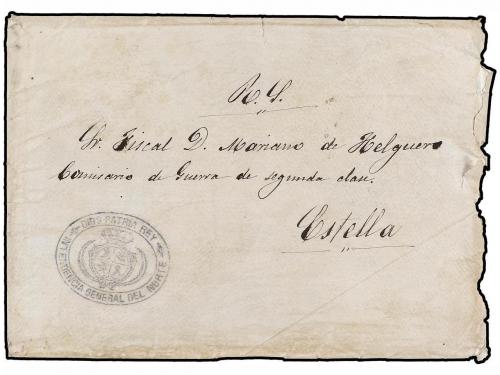 R. S.
Sr. Fiscal D. Mariano de Helguero
Comisario de Guerra de segunda clase.
Estella
DIOS PATRIA REY
INTENDENCIA GENERAL DEL NORTE